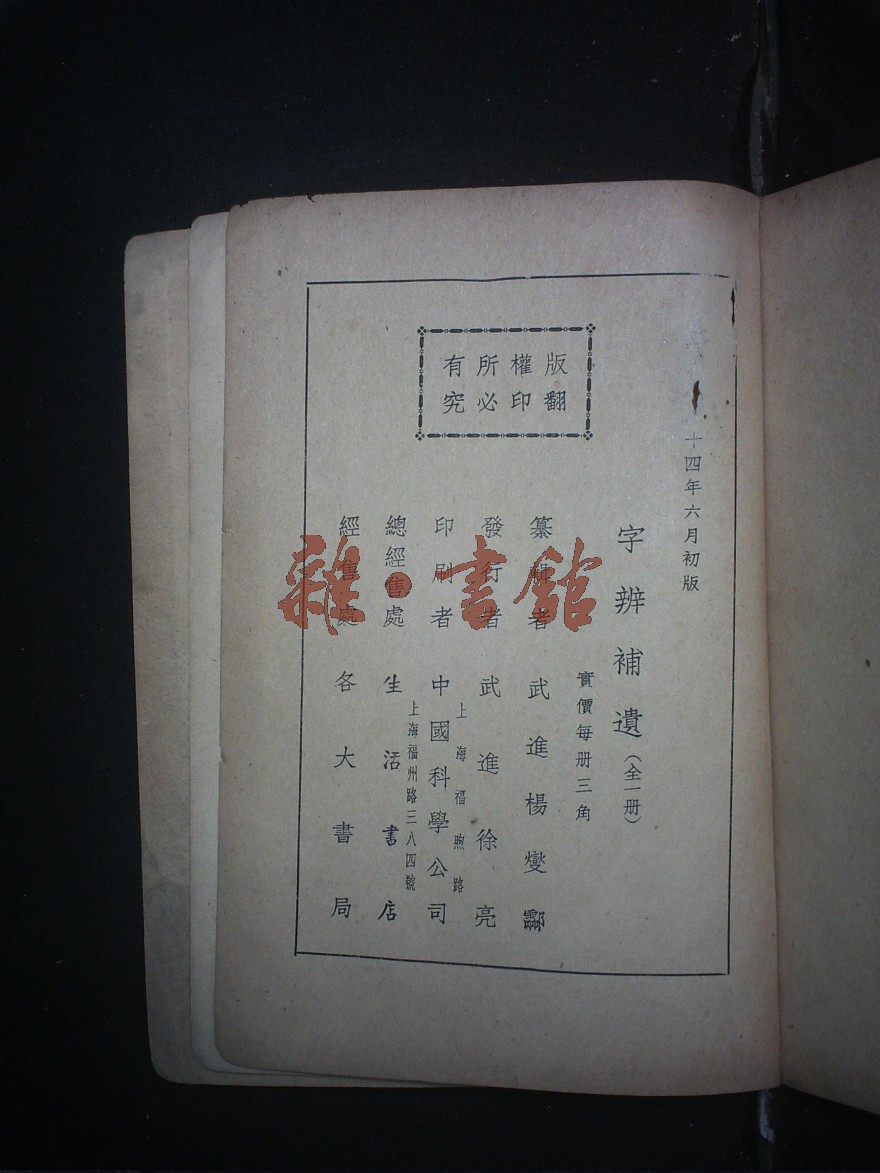 十四年六月初版
字辨補遺（全一册）
實價每册三角
纂輯者 武進楊燮酃
發行者 武進徐亮
上海福煦路
印刷者 中國科學公司
上海福州路三八四號
總經售處 生活書店
經售處 各大書局
版權所有
翻印必究
雜·書館